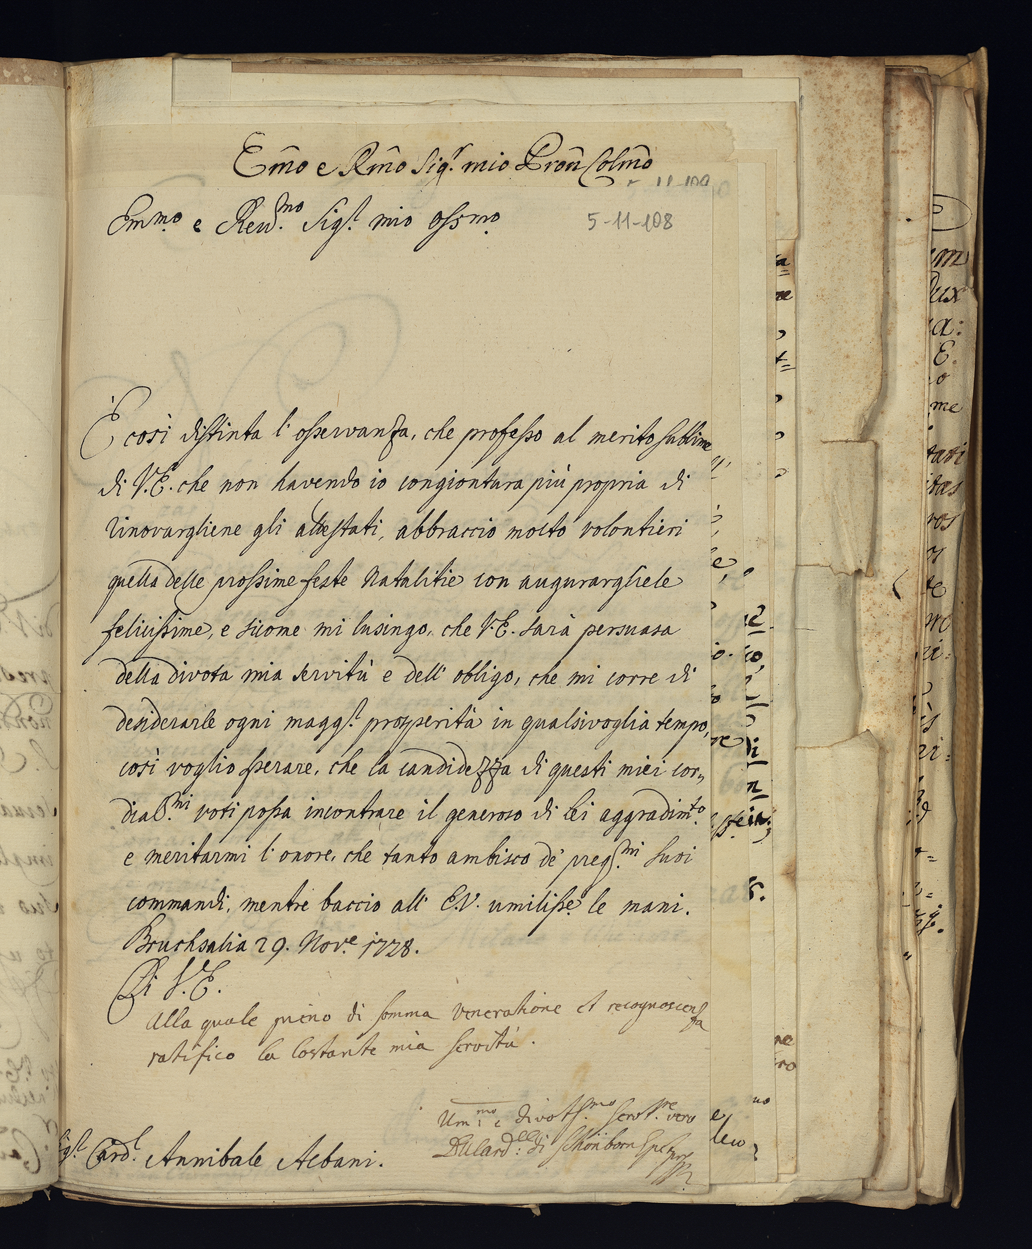 Em̃o e Rm̃o Sigr. mio Pron̄ Colm̃o
Emmo. e Revmo. Sigr. mio ossmo.
5-11-108
È così distinta l'osservanza, che professo al merito sublime
di V.E. che non havendo io congiontura più propria di
rinovargliene gli attestati, abbraccio molto volontieri
quella delle prossime feste Natalitie con augurargliele
felicissime, e sicome mi lusingo, che V.E. sarà persuasa
della divota mia servitù e dell'obligo, che mi corre di
desiderarle ogni maggr. prosperità in qualsivoglia tempo,
così voglio sperare, che la candidezza di questi miei cor,,
dialmi. voti possa incontrare il generoso di Lei aggradimto.
e meritarmi l'onore, che tanto ambisco de' pregmi. Suoi
commandi, mentre baccio all'E.V. umilisse. le mani.
Bruchsalia 29. Nove. 1728.
Di V.E.
Alla quale pieno di somma veneratione et recognoscenza
ratifico la Costante mia servitù.
Ummo. e divotissmo Servre. vero
Il Card. di Schönborn
Sigr. Cardl. Annibale Albani.